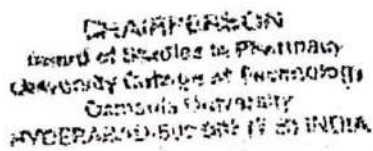 CHAIRPERSON
Board of Studies in Pharmacy
University College of Technology
Osmania University
HYDERABAD-500 007 (T.S) INDIA